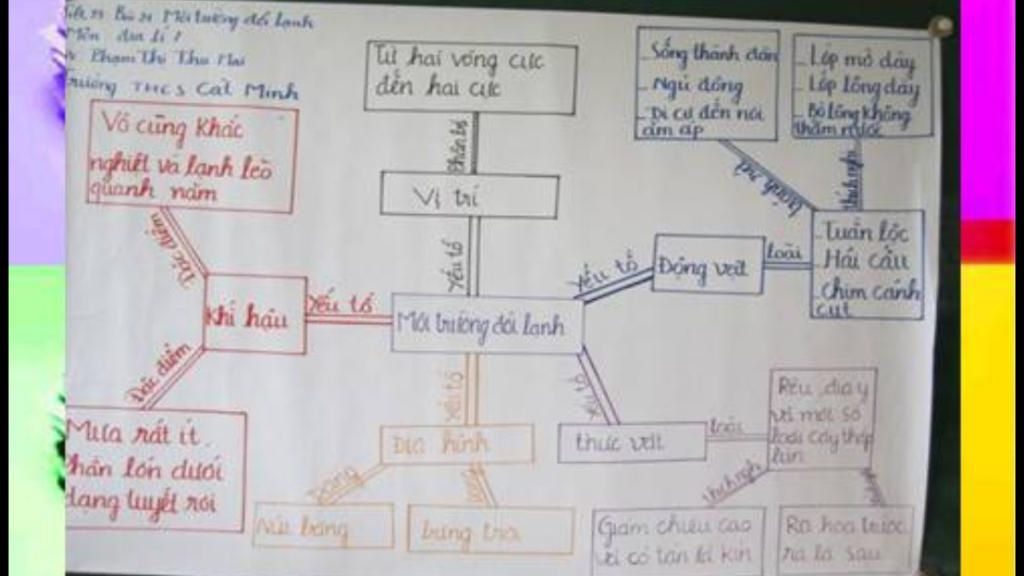 Tiết 23 Bài 21 Môi trường đới lạnh
Môn địa lí 7
Phạm Thị Thu Mai
Trường THCS Cát Minh
Từ hai vòng cực
đến hai cực
phân bố
Vị trí
yếu tố
Vô cùng khắc
nghiệt và lạnh lẽo
quanh năm
Đặc điểm
Khí hậu
yếu tố
Đặc điểm
Mưa rất ít
phần lớn dưới
dạng tuyết rơi
Môi trường đới lạnh
yếu tố
Động vật
loài
- Tuần lộc
- Hải cẩu
- Chim cánh
cụt
- Sống thành đàn
- Ngủ đông
- Di cư đến nơi
ấm áp
- Lớp mỡ dày
- Lớp lông dày
- Bộ lông không
thấm nước
thích nghi
yếu tố
Địa hình
băng
Núi băng
băng trôi
yếu tố
thực vật
loài
Rêu, địa y
và một số
loài cây thấp
lùn
thích nghi
Giảm chiều cao
và có tán lá kín
Ra hoa trước
ra lá sau